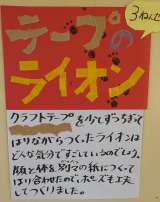 3ねんせ
テープの
ライオン
クラフトテープを少しずつちぎって
はりながらつくったライオンは
どんな気分ですごしているのでしょう。
顔と体を別々の紙につくって
はり合わせたので、ポーズも工夫
してつくりました。